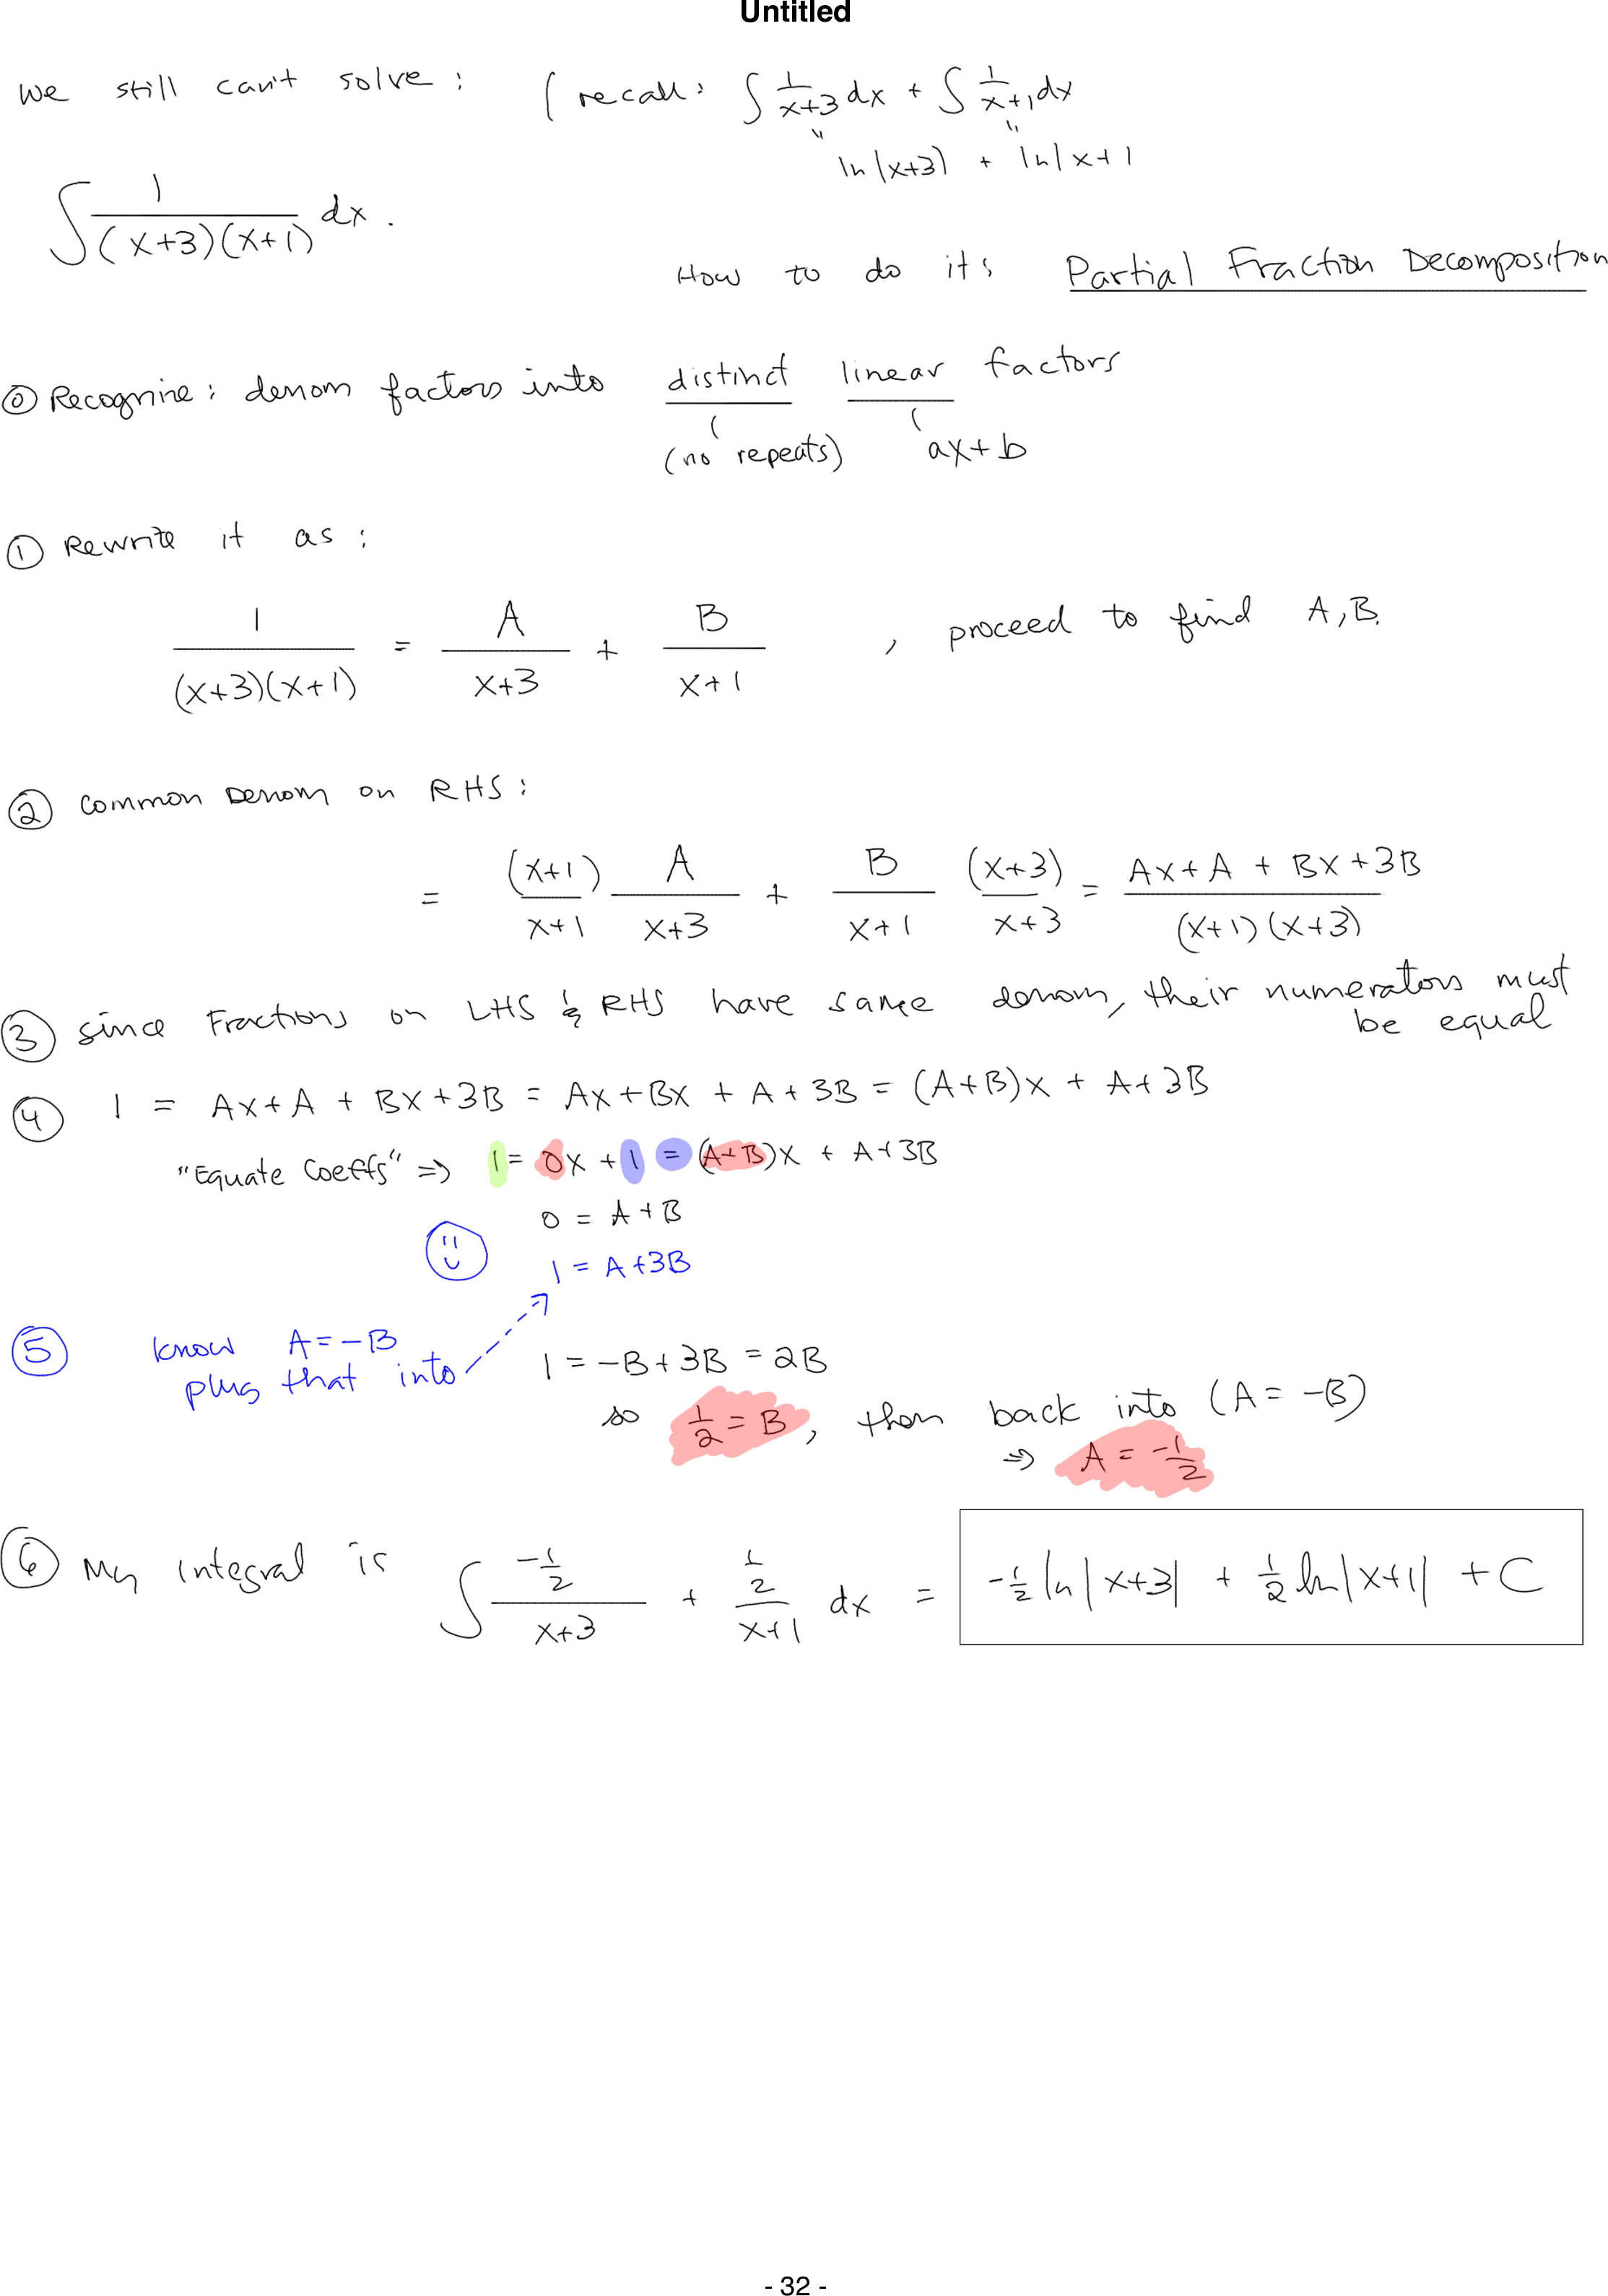 Untitled
We still can't solve : ( recall: ∫ 1/(x+3) dx + ∫ 1/(x+1) dx
" "
ln|x+3| + ln|x+1
∫ 1/((x+3)(x+1)) dx .
How to do it: Partial Fraction Decomposition
⓪ Recognize: denom factors into distinct linear factors
(no repeats) ax+b
① Rewrite it as :
1/((x+3)(x+1)) = A/(x+3) + B/(x+1) , proceed to find A, B.
② Common Denom on RHS :
= (x+1)/(x+1) A/(x+3) + B/(x+1) (x+3)/(x+3) = (Ax+A + Bx+3B)/((x+1)(x+3))
③ since Fractions on LHS & RHS have same denom, their numerators must
be equal
④ 1 = Ax+A + Bx+3B = Ax+Bx + A+3B = (A+B)x + A+3B
"Equate Coeffs" ⇒ 1 = 0x + 1 = (A+B)x + A+3B
0 = A+B
1 = A+3B
⑤ know A=-B
plug that into
1 = -B+3B = 2B
so 1/2 = B, then back into (A = -B)
⇒ A = -1/2
⑥ My integral is ∫ (-1/2)/(x+3) + (1/2)/(x+1) dx = -1/2 ln|x+3| + 1/2 ln|x+1| + C
- 32 -